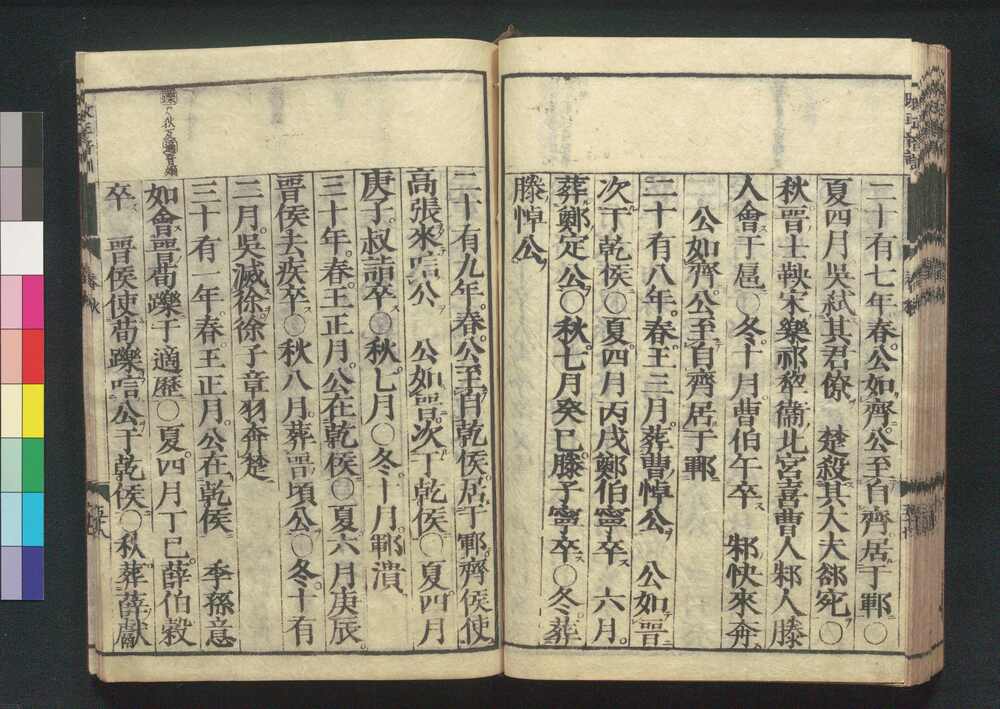 二十有七年春公如齊公至自齊居于鄆○
夏四月吳弑其君僚　楚殺其大夫郤宛○
秋晉士鞅宋樂祁犂衞北宮喜曹人邾人滕
人會于扈○冬十月曹伯午卒　邾快來奔
公如齊公至自齊居于鄆
二十有八年春王三月葬曹悼公　公如晉
次于乾侯○夏四月丙戌鄭伯寧卒　六月
葬鄭定公○秋七月癸巳滕子寧卒○冬葬
滕悼公
二十有九年春公至自乾侯居于鄆齊侯使
高張來唁公　公如晉次于乾侯○夏四月
庚子叔詣卒○秋七月○冬十月鄆潰
三十年春王正月公在乾侯○夏六月庚辰
晉侯去疾卒○秋八月葬晉頃公○冬十有
二月吳滅徐徐子章羽奔楚
三十有一年春王正月公在乾侯　季孫意
如會晉荀躒于適歷○夏四月丁巳薛伯穀
卒　晉侯使荀躒唁公于乾侯○秋葬薛獻
春秋